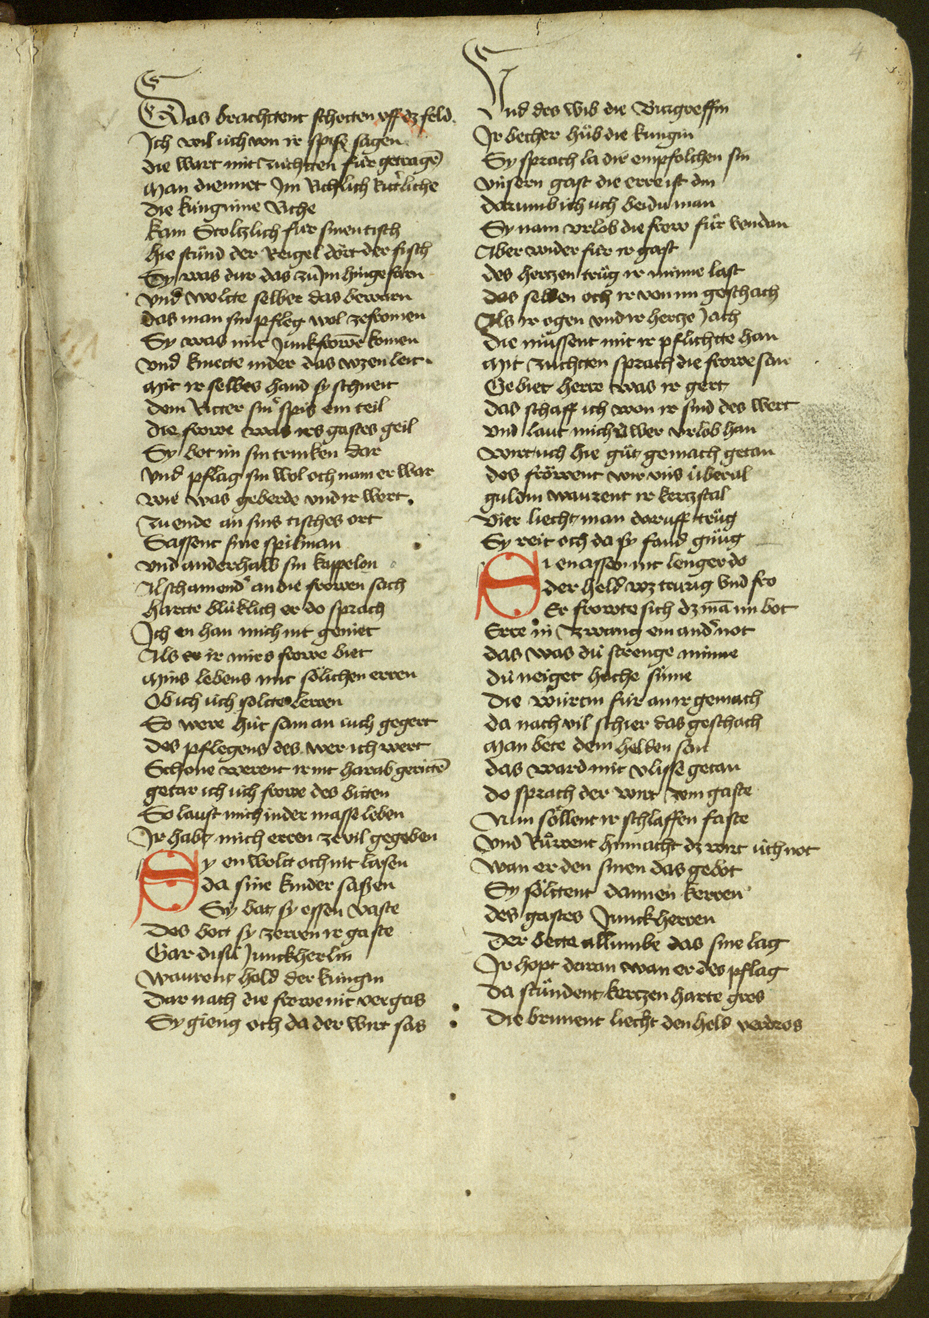 4
Das brachttent schotten vff dz feld
Jch wil úch von ir spiß sagen
die wart mit zúchtten fúr getragē
Man diennet Jm Richlich Ritt'liche
Die kúnginne Riche
kam Stoltzlich fúr sinen tisch
hie stúnd der Reigel dört der fisch
Sy was dur das zů Jm hin gefaren
vnd woltte selber das bewarn
das man sin pfleg wol ze fromen
Sy was mit Junkfrowē komen
vnd knuwete nider das wzen leit
Mit ir selbes hand sy schneit
dem Ritter sin' spis ein teil
die frowe was irs gastes geil
Sy bot im sin trinken dar
vnd pflag sin wol och nam er war
wie was geberde vnd ir wort
zu ende an sins tisches ort
Sassent sine spilman
vnd anderhalb sin kappelon
Al schamend' an die frowen sach
harte blúklich er do sprach
Jch en han mich nit geniet
Als er ir mirs frowe biet
Mins lebens mit sölichen erren
Ob ich úch soltte lerren
So were hút sam an úch gegert
des pflegens des wer ich wert
Schone werent ir nit harab gerittē
getar ich úch frowe des bitten
So laust mich in der masse leben
Jr habt mich erren ze vil gegeben
Sy en wolt och nit lasen
da sine kinder saßen
Sy bat sy essen vaste
Des bott sy zerren ir gaste
Gar disú Junckherlin
warent hold der kúngin
Dar nach die frowe nit vergas
Sy gieng och da der wirt sas
Vnd des wib die Burgreffin
Jr becher hůb die kúngin
Sy sprach la dir empfolchen sin
vnsern gast die erre ist din
darumb ich úch beidú man
Sy nam vrlob die frow fúr von dan
Aber wider fúr ir gast
des hertzen trůg ir minne last
das selben och ir von im geschach
Als ir ogen vnd ir hertze Jach
die můssent mit ir pflichtte han
Mit zúchten sprach die frowe san
Gebiet herre was ir gert
das schaff ich won ir sind des wert
vnd laut mich úwer vrlob han
wirt úch hie gůt gemach getan
des fröwent wir vns úberal
guldin warent ir kertzstal
vier liecht man daruff trůg
Sy reit och da sy fand gnůg
Si en assen nit lenger do
der held wz trurig vnd fro
Er frowte sich dz mā im bot
Erre in zwang ein and' not
das was dú strenge minne
dú neiget hoche sinne
Die wirtin fúr an ir gemach
da nach vil schier das geschach
Man bete dem helden san
das ward mit vlisse getan
do sprach der wirt zem gaste
Nun söllent ir schlaffen faste
vnd Růwent hinnacht dz wirt úch not
wan er den sinen das gebot
Sy sölttent dannen kerren
des gastes Junckherren
Der bette allumbe das sine lag
Jr hopt daran wan er des pflag
Da stůndent kertzen harte gros
Die brunent liecht den held verdros